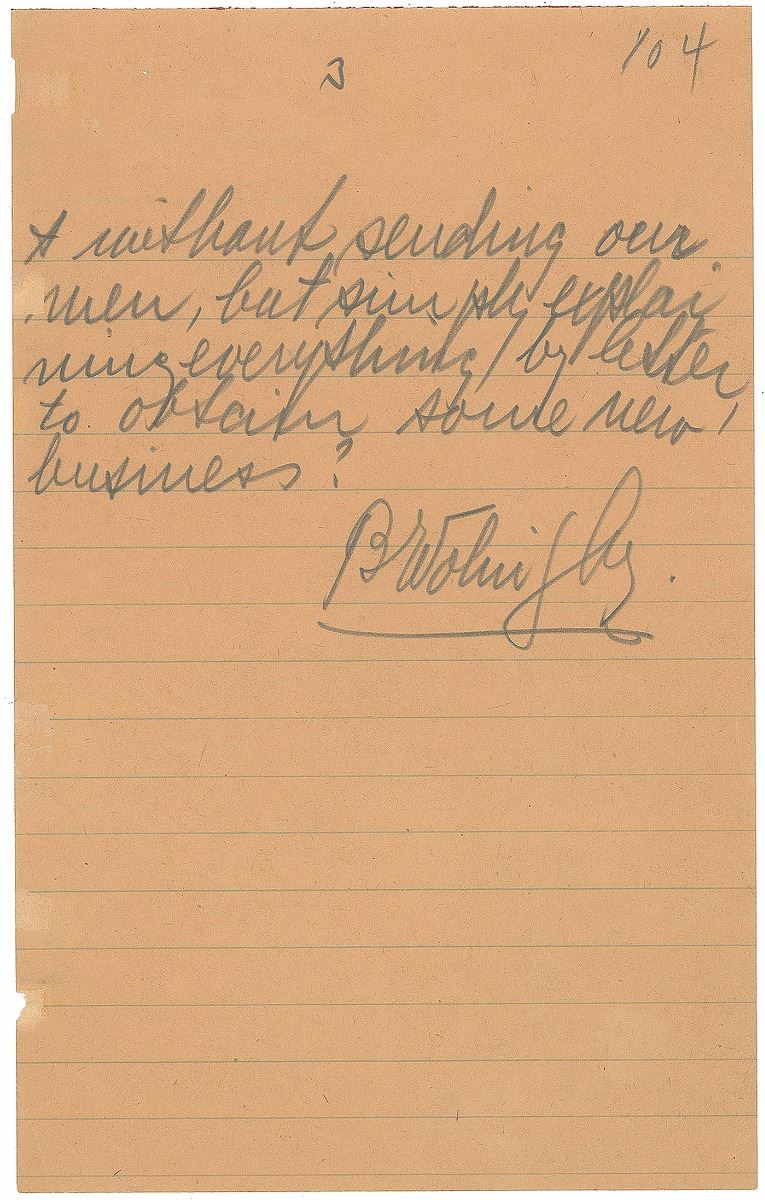 3
104
& without sending our
men, but simply explai
ning everything by letter
to obtain some new
business?